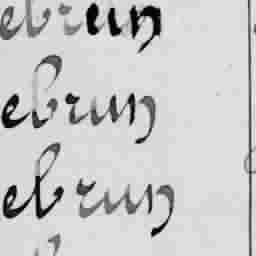 ebrun
ebrun
ebrun